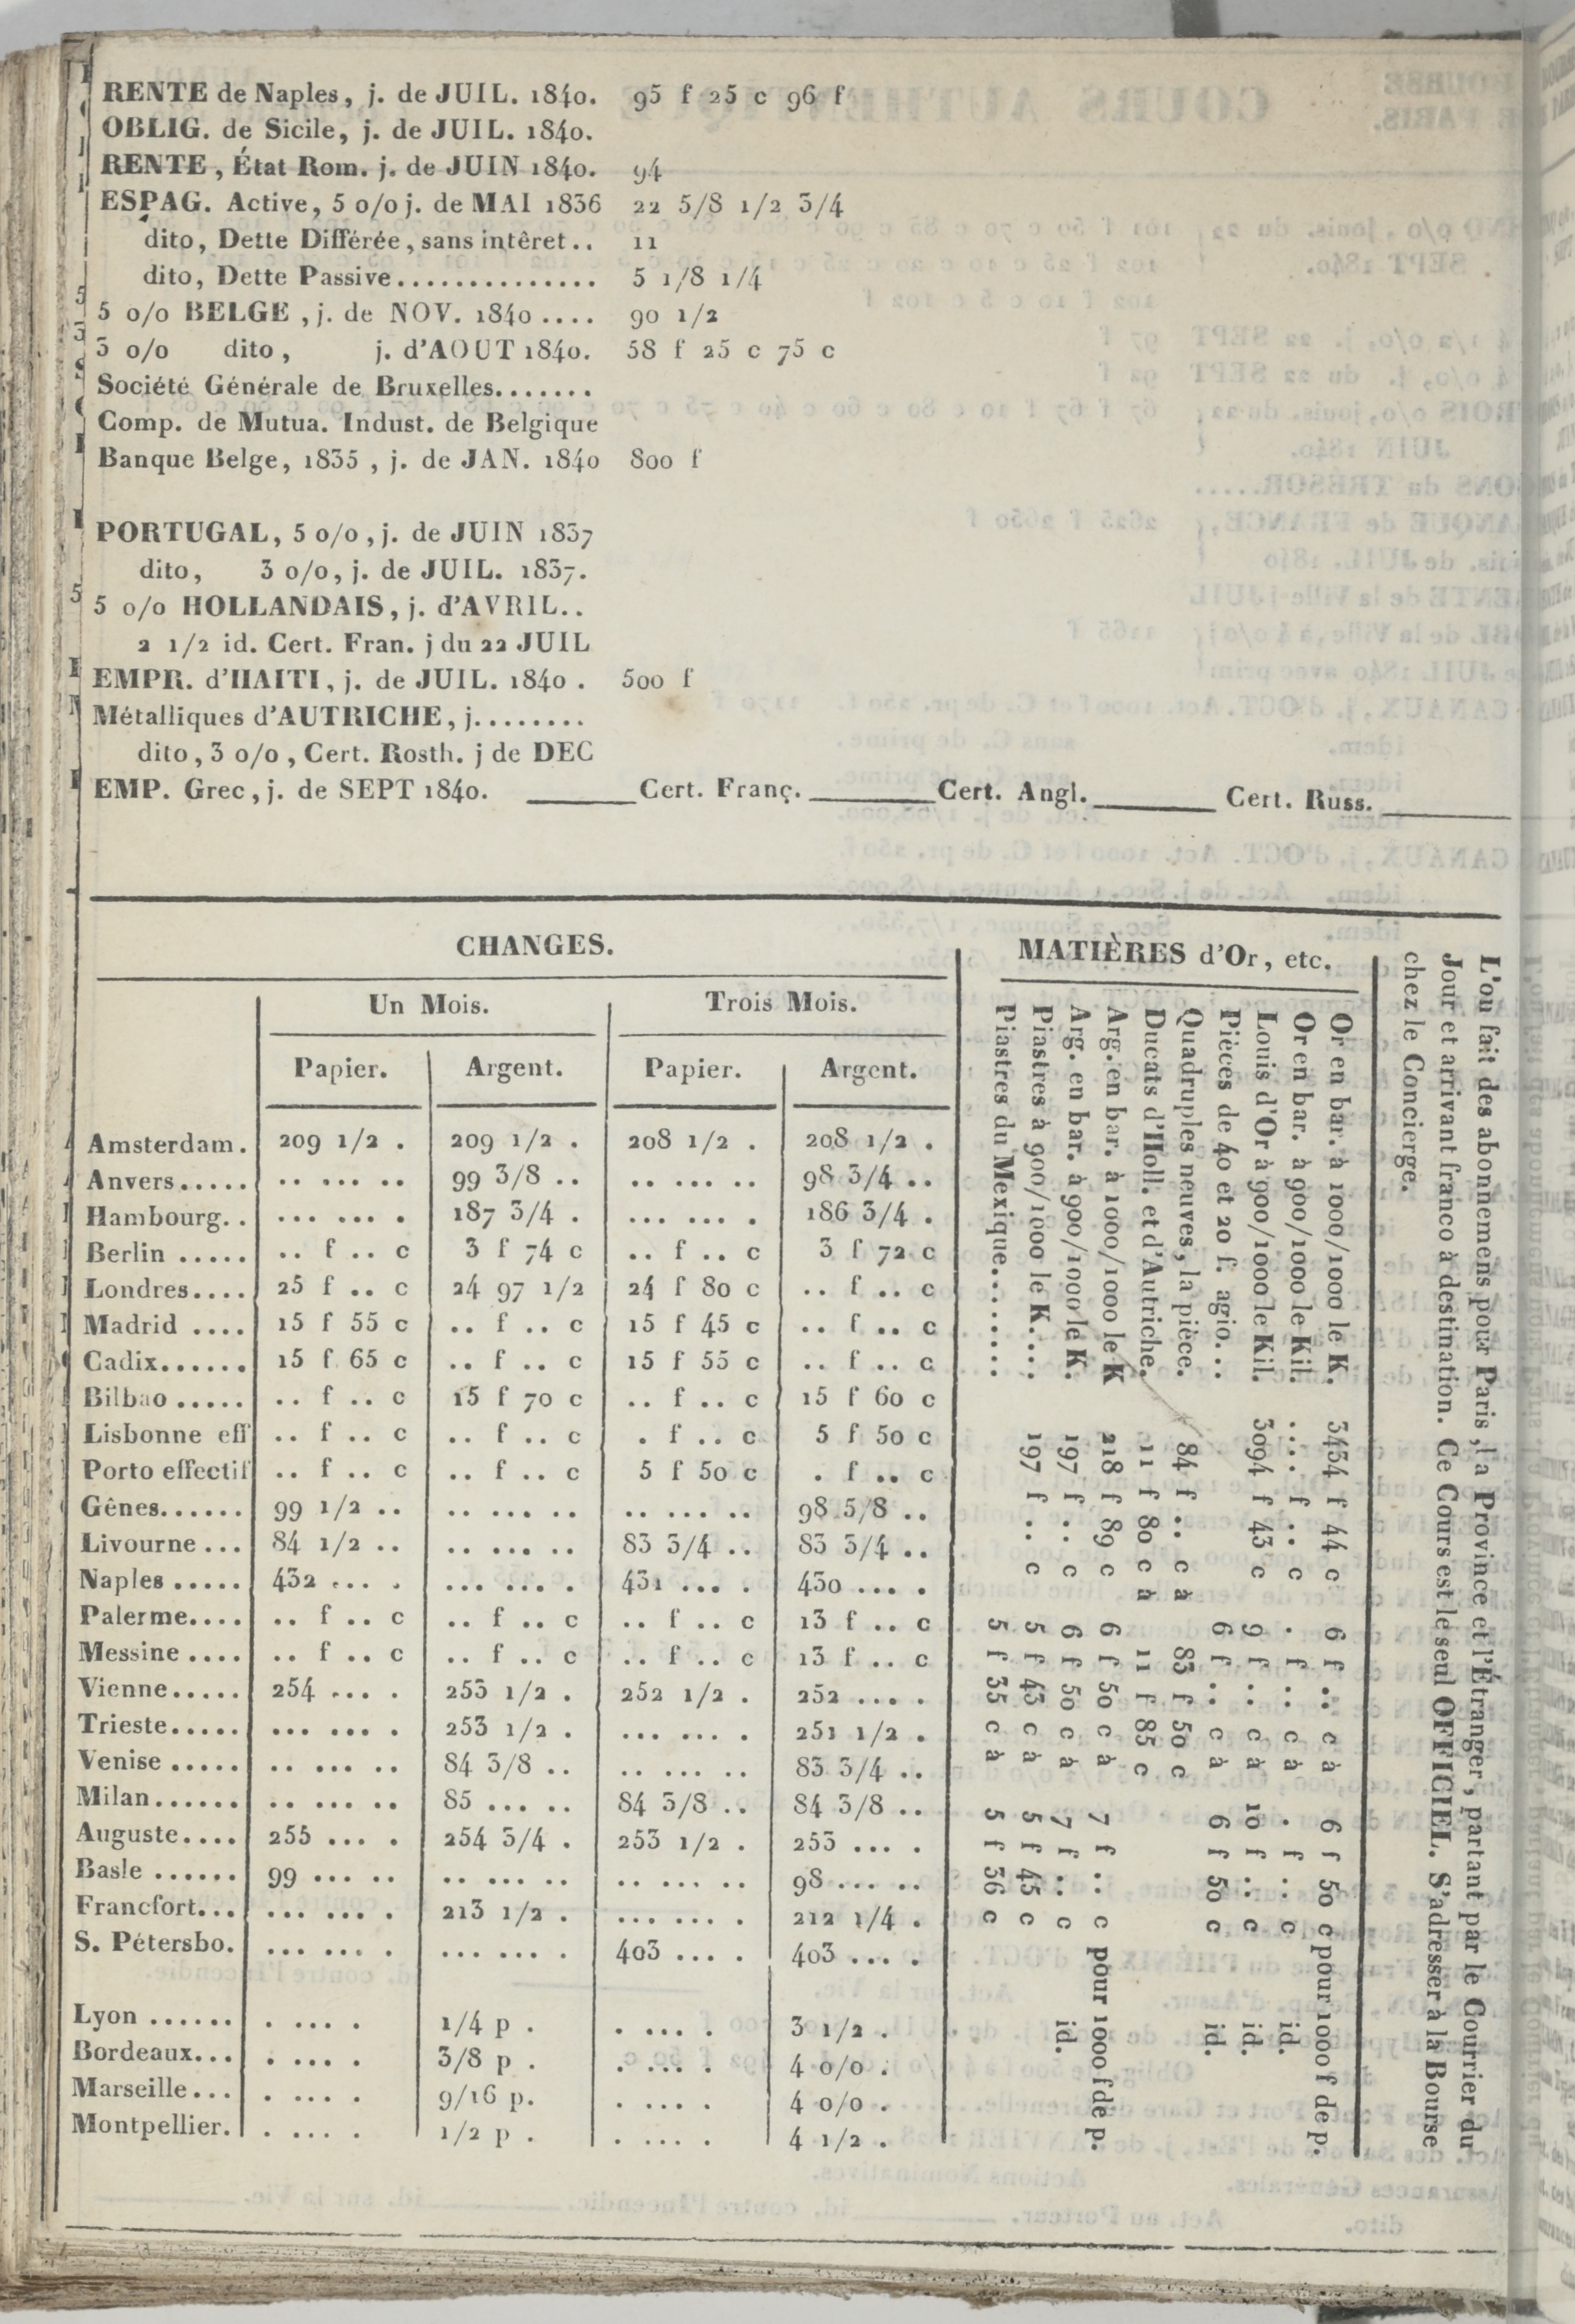 RENTE de Naples, j. de JUIL. 1840. 95 f 25 c 96 f
OBLIG. de Sicile, j. de JUIL. 1840.
RENTE, État Rom. j. de JUIN 1840. 94
ESPAG. Active, 5 o/o j. de MAI 1836 22 5/8 1/2 3/4
dito, Dette Différée, sans intêret.. 11
dito, Dette Passive.............. 5 1/8 1/4
5 o/o BELGE, j. de NOV. 1840.... 90 1/2
3 o/o dito, j. d'AOUT 1840. 58 f 25 c 75 c
Société Générale de Bruxelles.......
Comp. de Mutua. Indust. de Belgique
Banque Belge, 1835, j. de JAN. 1840 800 f
PORTUGAL, 5 o/o, j. de JUIN 1837
dito, 3 o/o, j. de JUIL. 1837.
5 o/o HOLLANDAIS, j. d'AVRIL..
2 1/2 id. Cert. Fran. j du 22 JUIL
EMPR. d'HAITI, j. de JUIL. 1840. 500 f
Métalliques d'AUTRICHE, j........
dito, 3 o/o, Cert. Rosth. j de DEC
EMP. Grec, j. de SEPT 1840. ______ Cert. Franç. ______ Cert. Angl. ______ Cert. Russ. ______
CHANGES.
Un Mois. Trois Mois.
Papier. Argent. Papier. Argent.
Amsterdam. 209 1/2 . 209 1/2 . 208 1/2 . 208 1/2 .
Anvers..... .. ... .. 99 3/8 .. .. ... .. 98 3/4 ..
Hambourg.. ... ... . 187 3/4 . ... ... . 186 3/4 .
Berlin ..... .. f .. c 3 f 74 c .. f .. c 3 f 72 c
Londres.... 25 f .. c 24 97 1/2 24 f 80 c .. f .. c
Madrid .... 15 f 55 c .. f .. c 15 f 45 c .. f .. c
Cadix...... 15 f 65 c .. f .. c 15 f 55 c .. f .. c
Bilbao ..... .. f .. c 15 f 70 c .. f .. c 15 f 60 c
Lisbonne eff .. f .. c .. f .. c . f .. c 5 f 50 c
Porto effectif .. f .. c .. f .. c 5 f 50 c . f .. c
Gênes...... 99 1/2 .. .. ... .. .. ... .. 98 5/8 ..
Livourne ... 84 1/2 .. .. ... .. 83 3/4 .. 83 3/4 ..
Naples ..... 432 ... . ... ... . 431 ... . 430 ... .
Palerme.... .. f .. c .. f .. c .. f .. c 13 f .. c
Messine .... .. f .. c .. f .. c .. f .. c 13 f .. c
Vienne..... 254 ... . 253 1/2 . 252 1/2 . 252 ... .
Trieste..... ... ... . 253 1/2 . ... ... . 251 1/2 .
Venise ..... .. ... .. 84 3/8 .. .. ... .. 83 3/4 ..
Milan...... .. ... .. 85 ... .. 84 3/8 .. 84 3/8 ..
Auguste.... 255 ... . 254 3/4 . 253 1/2 . 253 ... .
Basle ...... 99 ... .. .. ... .. .. ... .. 98 ... ..
Francfort... ... ... . 213 1/2 . ... ... . 212 1/4 .
S. Pétersbo. ... ... . ... ... . 403 ... . 403 ... .
Lyon ...... . .... . 1/4 p . . .... . 3 1/2 .
Bordeaux... . .... . 3/8 p . . .... . 4 o/o .
Marseille... . .... . 9/16 p. . .... . 4 o/o .
Montpellier. . .... . 1/2 p . . .... . 4 1/2 .
MATIÈRES d'Or, etc.
Or en bar. à 1000/1000 le K. 3434 f 44 c 6 f .. c à 6 f 50 c pour 1000 f de p.
Or en bar. à 900/1000 le Kil. .... f .. c . f .. c à . f .. c id.
Louis d'Or à 900/1000 le Kil. 3094 f 43 c 9 f .. c à 10 f .. c id.
Pièces de 40 et 20 f. agio... 6 f .. c à 6 f 50 c id.
Quadruples neuves, la pièce. 84 f .. c à 83 f 50 c
Ducats d'Holl. et d'Autriche. 11 f 80 c à 11 f 85 c
Arg. en bar. à 1000/1000 le K 218 f 89 c 6 f 50 c à 7 f .. c pour 1000 f de p.
Arg. en bar. à 900/1000 le K. 197 f .. c 6 f 50 c à 7 f .. c id.
Piastres à 900/1000 le K.... 197 f .. c 5 f 43 c à 5 f 45 c
Piastres du Mexique....... 5 f 35 c à 5 f 36 c
L'on fait des abonnemens pour Paris, la Province et l'Étranger, partant par le Courrier du
Jour et arrivant franco à destination. Ce Cours est le seul OFFICIEL. S'adresser à la Bourse
chez le Concierge.